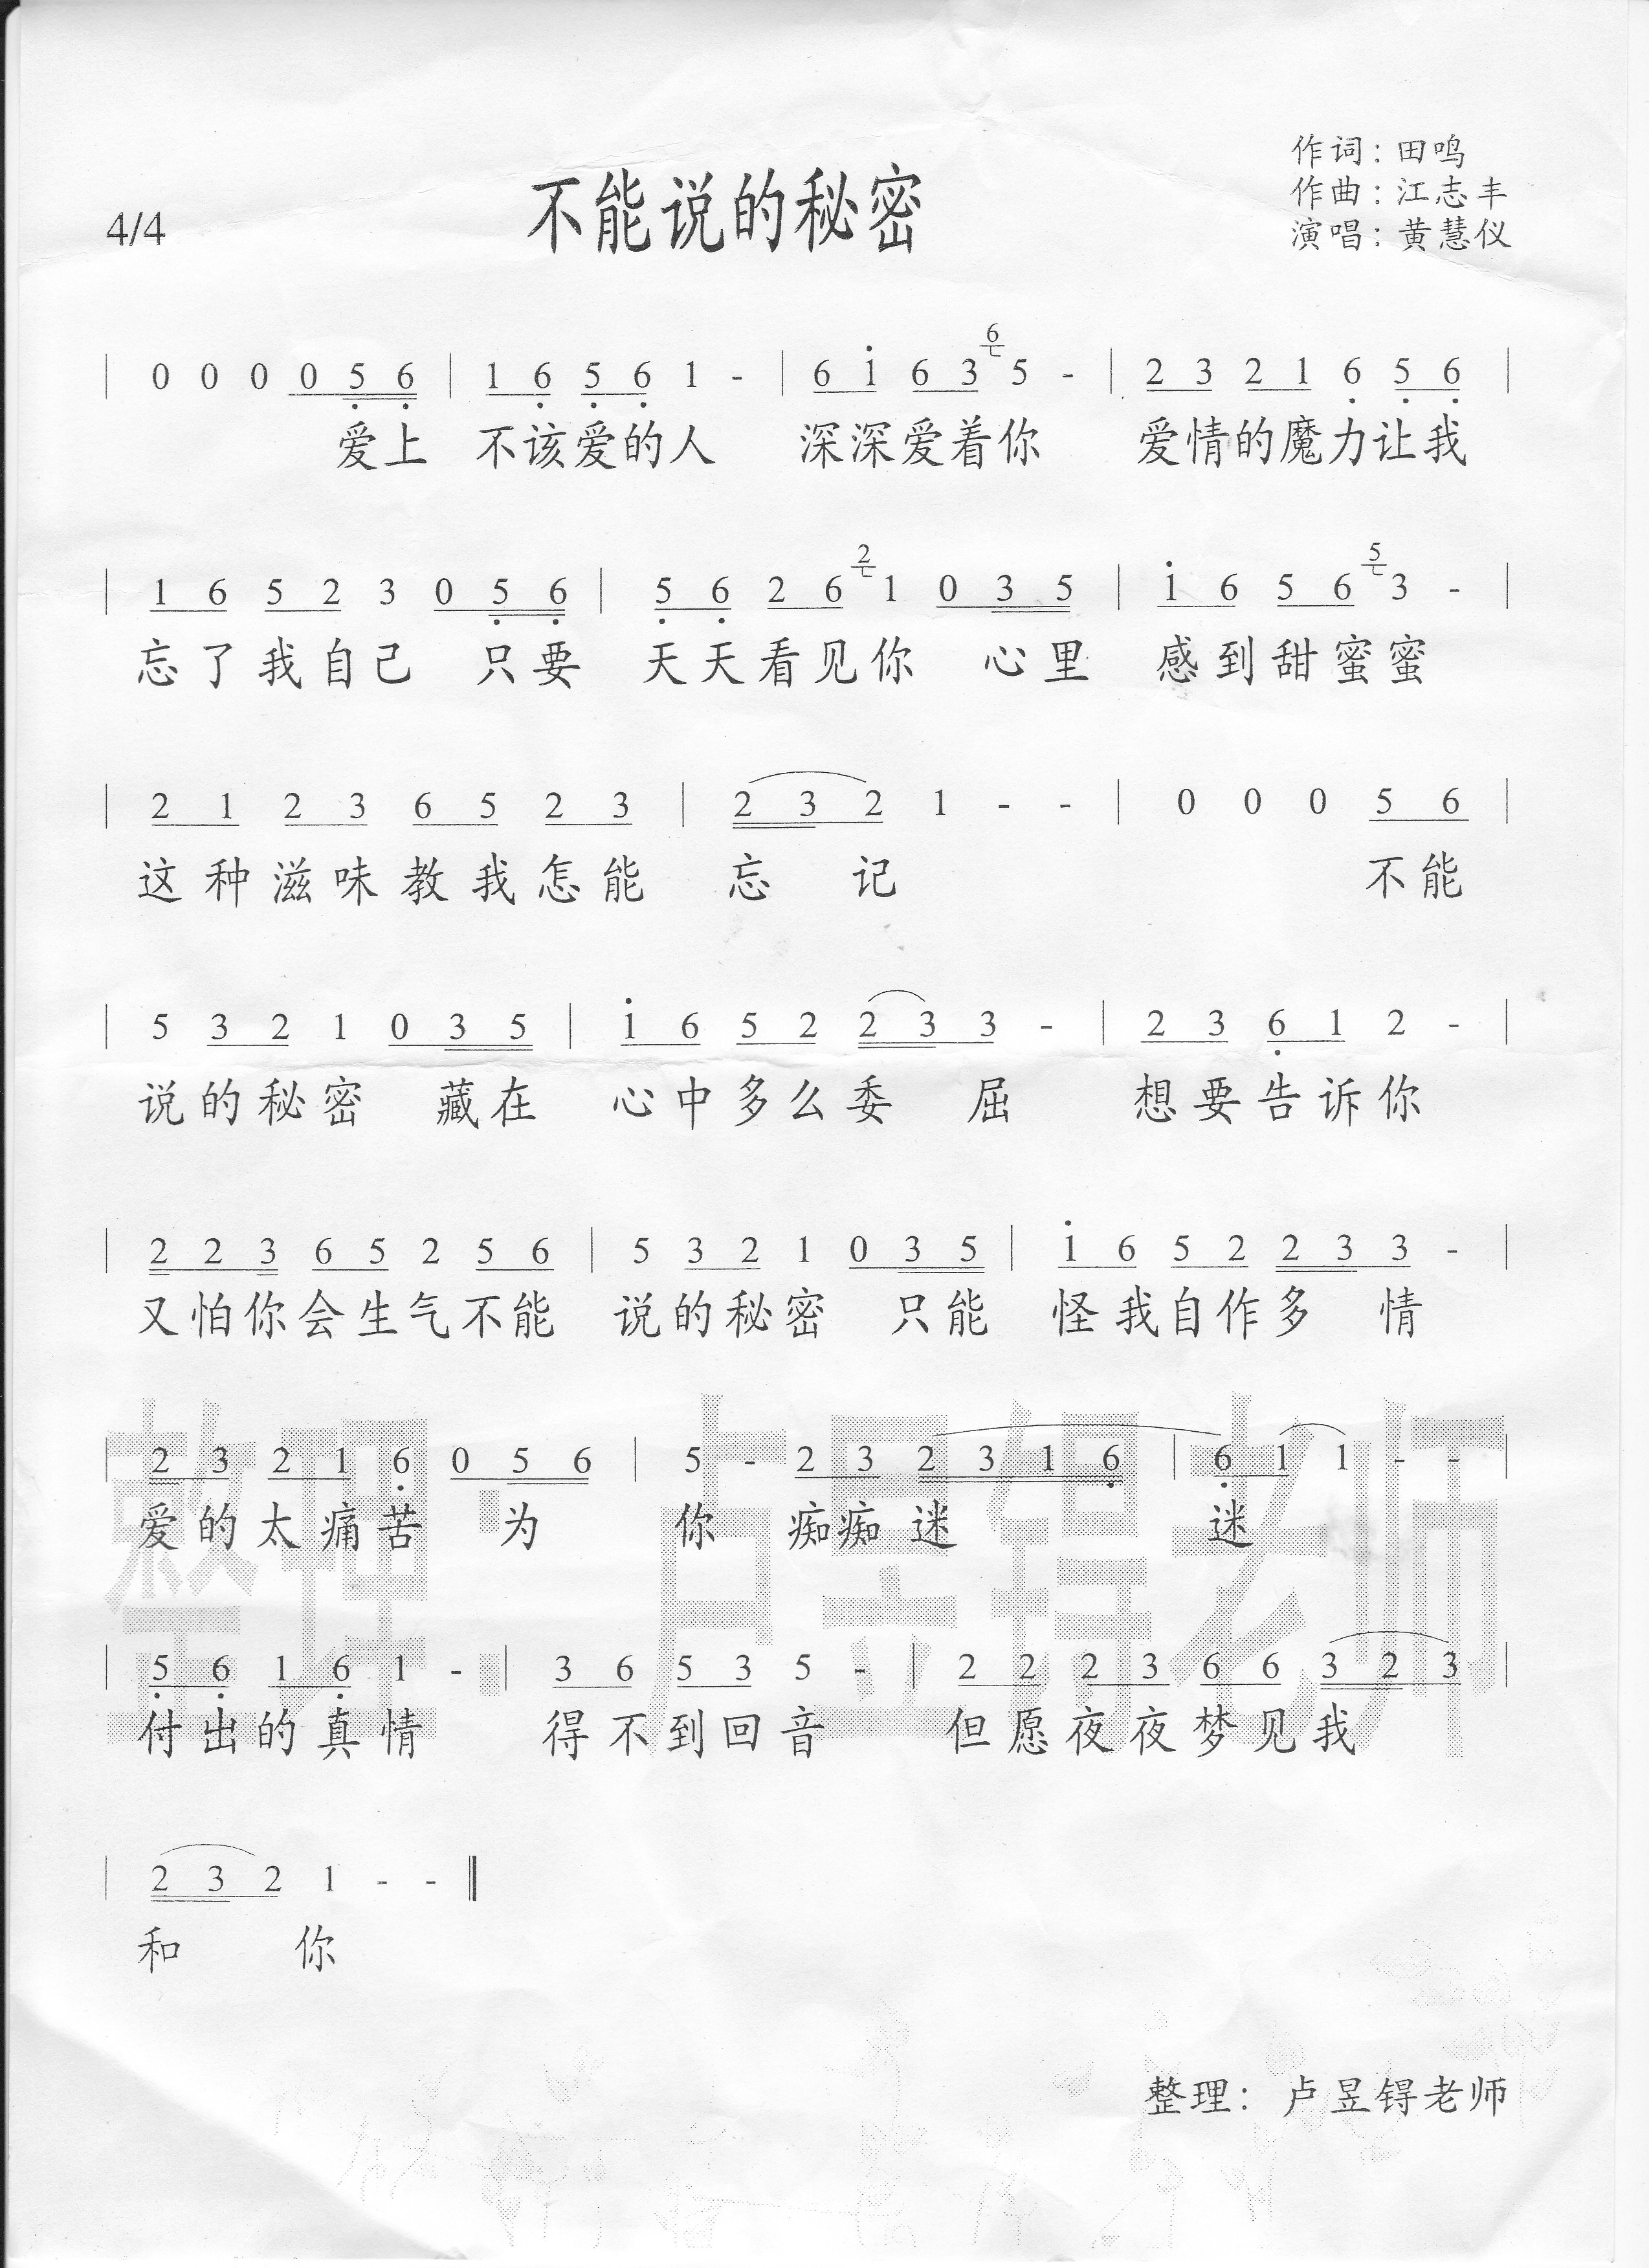 作词：田鸣
不能说的秘密
作曲：江志丰
4/4
演唱：黄慧仪
| 0 0 0 0 5̣ 6̣ | 1 6̣ 5̣ 6̣ 1 - | 6 1̇ 6 3 6 5 - | 2 3 2 1 6̣ 5̣ 6̣ |
爱上 不该爱的人 深深爱着你 爱情的魔力让我
| 1 6 5 2 3 0 5̣ 6̣ | 5̣ 6̣ 2 6 2 1 0 3 5 | 1̇ 6 5 6 5 3 - |
忘了我自己 只要 天天看见你 心里 感到甜蜜蜜
| 2 1 2 3 6 5 2 3 | 2 3 2 1 - - | 0 0 0 5 6 |
这种滋味教我怎能 忘 记 不能
| 5 3 2 1 0 3 5 | 1̇ 6 5 2 2 3 3 - | 2 3 6̣ 1 2 - |
说的秘密 藏在 心中多么委 屈 想要告诉你
| 2 2 3 6 5 2 5 6 | 5 3 2 1 0 3 5 | 1̇ 6 5 2 2 3 3 - |
又怕你会生气不能 说的秘密 只能 怪我自作多 情
| 2 3 2 1 6̣ 0 5 6 | 5 - 2 3 2 3 1 6̣ | 6̣ 1 1 - - |
爱的太痛苦 为 你 痴痴迷 迷
| 5̣ 6̣ 1 6̣ 1 - | 3 6 5 3 5 - | 2 2 2 3 6 6 3 2 3 |
付出的真情 得不到回音 但愿夜夜梦见我
| 2 3 2 1 - - ‖
和 你
整理：卢昱锝老师
整理：卢昱锝老师